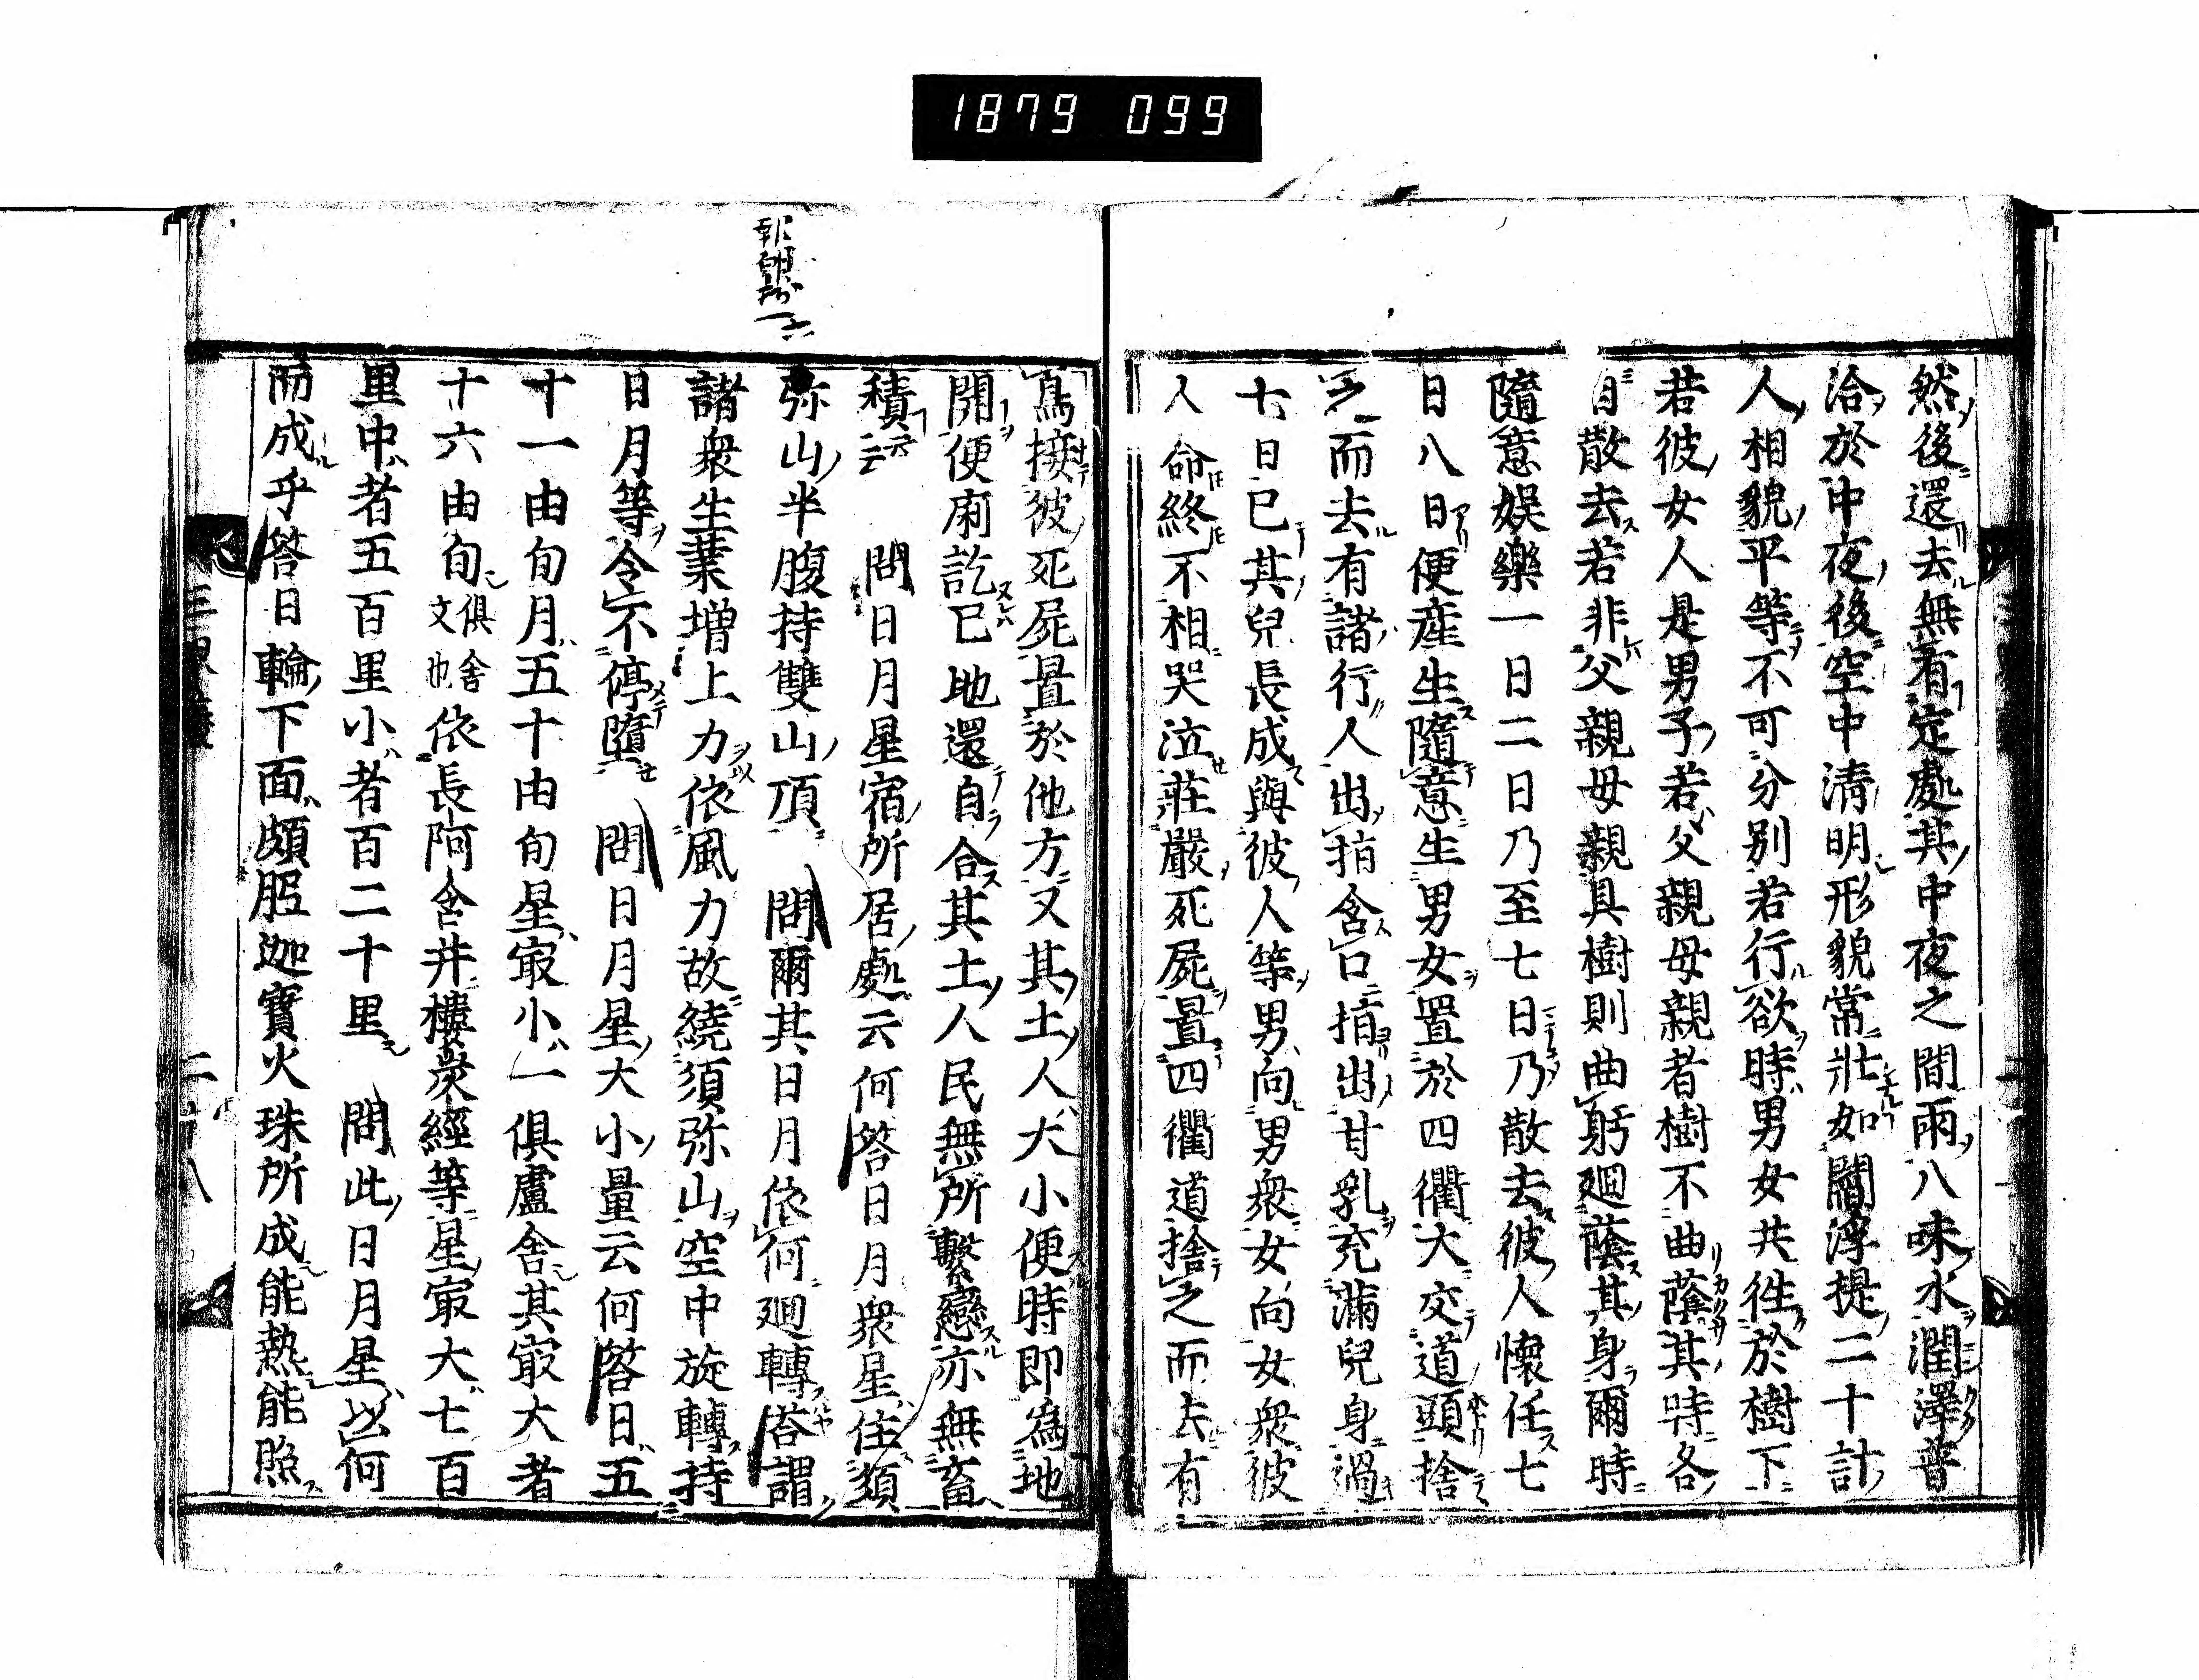 1879 099
然後還去無有定處其中夜之間兩八味水潤澤普
洽於中夜後空中清明形貌常壯如閻浮提二十計
人相貌平等不可分別若行欲時男女共徃於樹下
若彼女人是男子若父親母親者樹不曲蔭其時各
自散去若非父親母親具樹則曲躬廻蔭其身爾時
隨意娯樂一日二日乃至七日乃散去彼人懷任七
日八日便産生隨意生男女置於四衢大交道頭捨
之而去有諸行人出指含口指出甘乳充滿兒身過
七日已其兒長成與彼人等男向男衆女向女衆彼
人命終不相哭泣莊嚴死屍置四衢道捨之而去有
鳥接彼死屍置於他方又其土人大小便時即為地
開便廁訖已地還自合其土人民無所繫戀亦無畜
積云云　問日月星宿所居處云何答日月衆星住須
弥山半腹持雙山頂　問爾其日月依何廻轉答謂
諸衆生業増上力依風力故繞須弥山空中旋轉持
日月等令不停墮　問日月星大小量云何答日五
十一由旬月五十由旬星㝡小一俱盧舍其㝡大者
十六由旬俱舍文也依長阿含并樓炭經等星㝡大七百
里中者五百里小者百二十里　問此日月星以何
而成乎答日輪下面頗胝迦寶火珠所成能熱能照